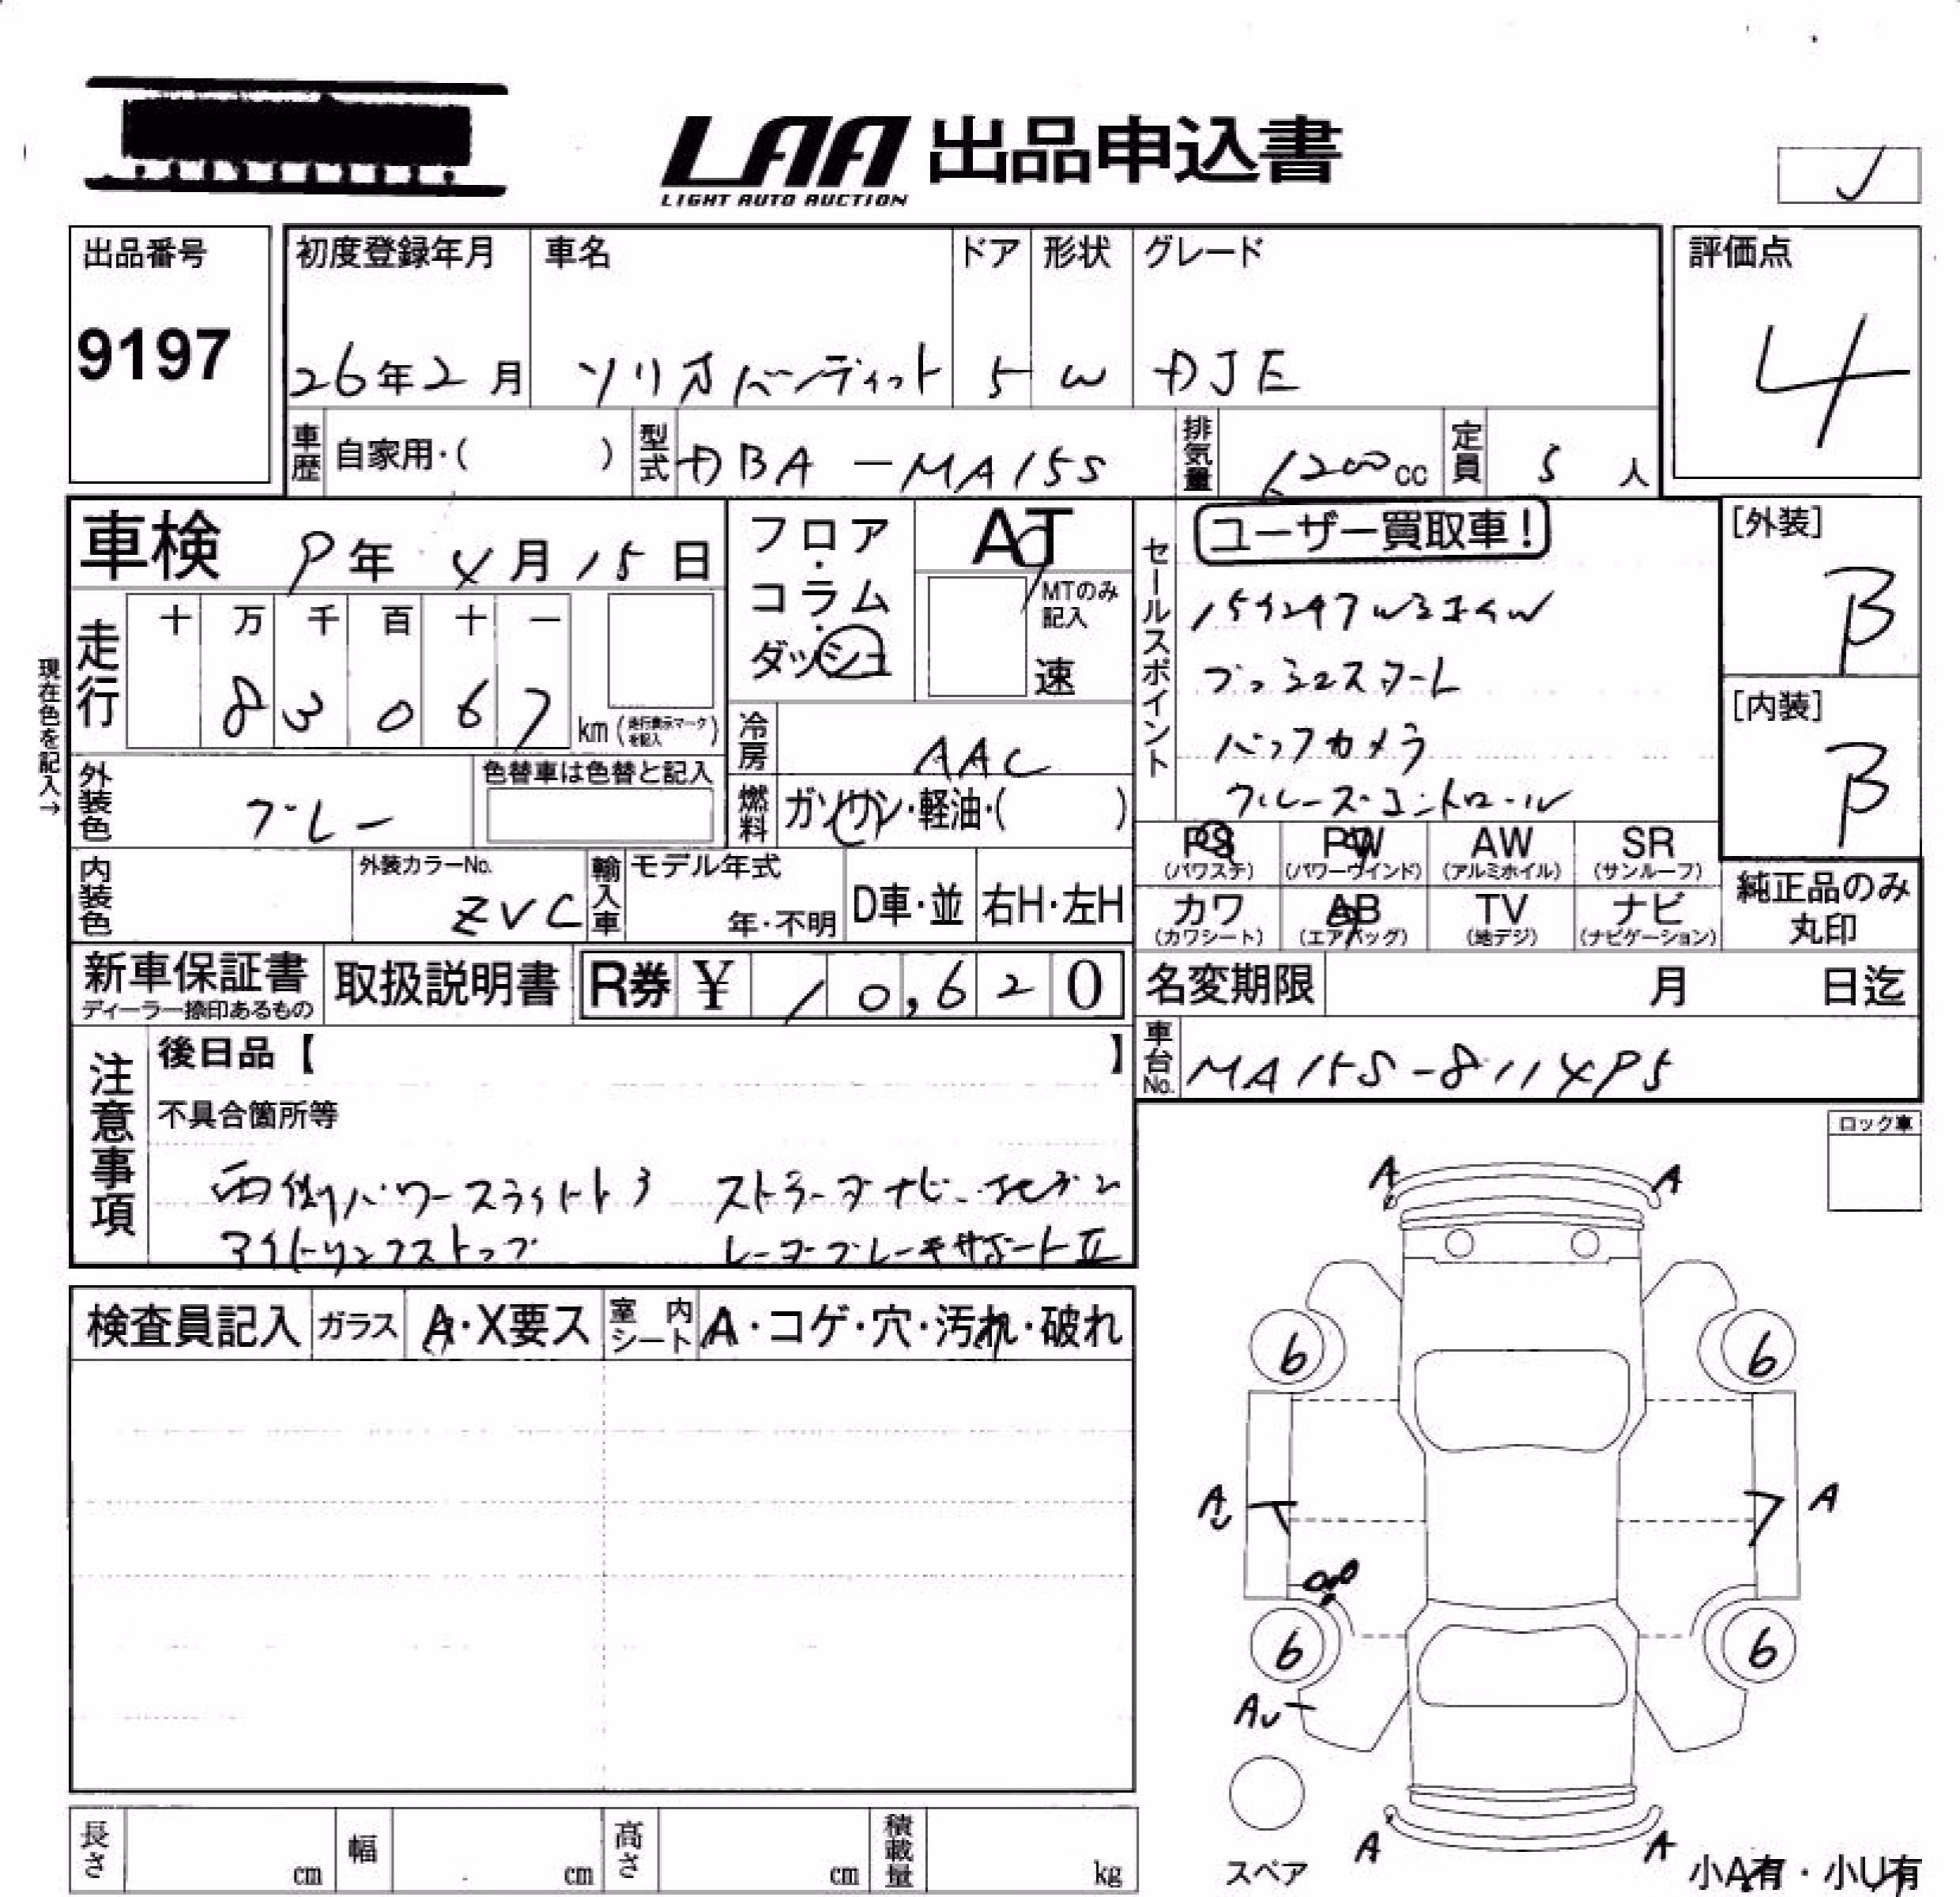 LAA 出品申込書
LIGHT AUTO AUCTION
出品番号
9197
初度登録年月
26年2月
車名
ソリオバンディット
ドア
5
形状
W
グレード
DJE
評価点
4
車歴 自家用・( )
型式 DBA-MA15S
排気量 1200cc
定員 5人
現在色を記入→
車検 9年4月15日
走行
十 万 千 百 十 一
8 3 0 6 7 km (走行表示マークを記入)
フロア・コラム・ダッシュ
AT
MTのみ記入
速
冷房 AAC
燃料 ガソリン・軽油・( )
外装色 グレー
色替車は色替と記入
内装色
外装カラーNo.
ZVC
輸入車 モデル年式
年・不明
D車・並
右H・左H
セールスポイント
ユーザー買取車!
プッシュスタート
バックカメラ
クルーズコントロール
[外装]
B
[内装]
B
PS PW AW SR
(パワステ) (パワーウインド) (アルミホイル) (サンルーフ)
カワ AB TV ナビ
(カワシート) (エアバッグ) (地デジ) (ナビゲーション)
純正品のみ
丸印
新車保証書
ディーラー捺印あるもの
取扱説明書
R券 ¥ 10,620
名変期限 月 日迄
車台No. MA15S-811495
注意事項
後日品【 】
不具合箇所等
両側パワースライドドア
アイドリングストップ
レーダーブレーキサポートⅡ
ロック車
検査員記入
ガラス A・X要ス
室内シート A・コゲ・穴・汚れ・破れ
A A
6 6
A A
6 6
AU
スペア
A A
小A有・小U有
長さ cm
幅 cm
高さ cm
積載量 kg